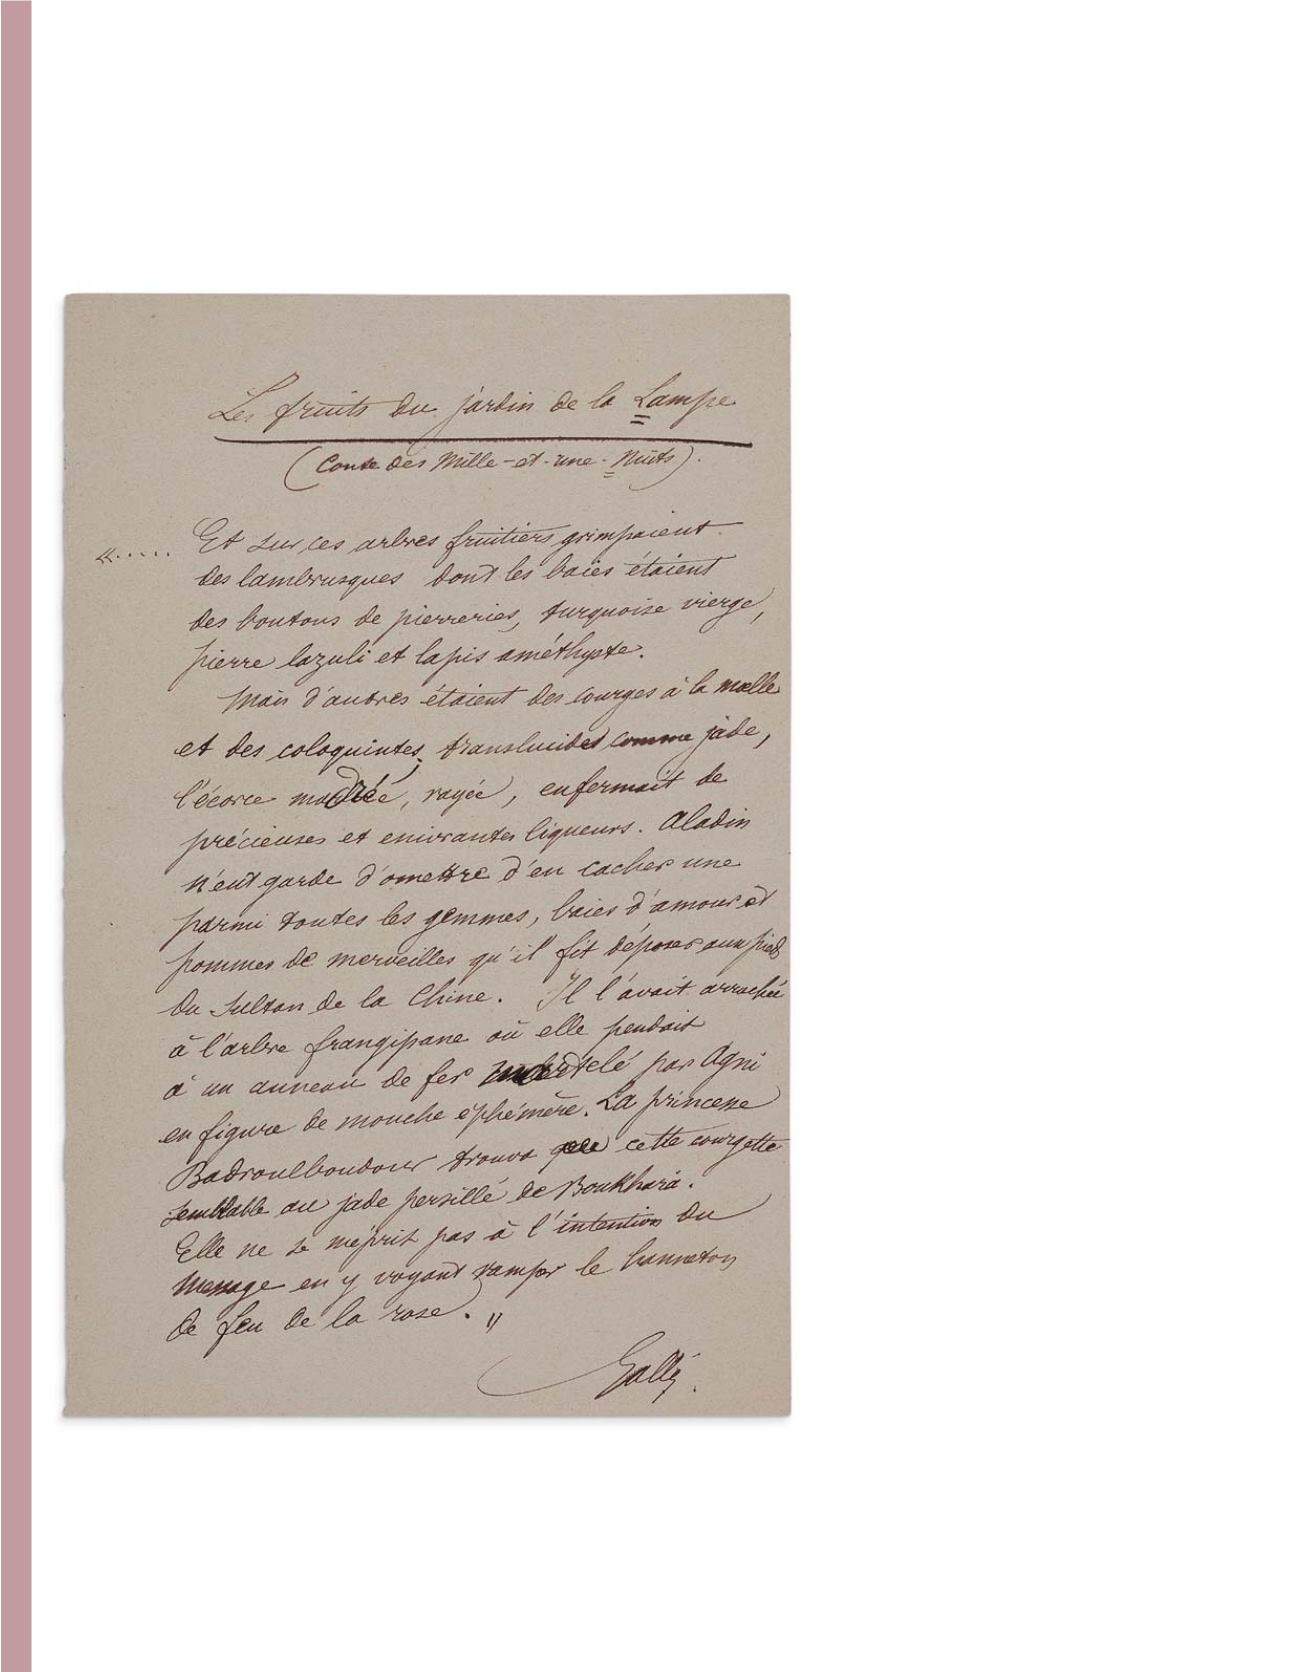 Les fruits du jardin de la Lampe
(Conte des Mille-et-une-Nuits).
«..... Et sur ces arbres fruitiers grimpaient
des lambrusques dont les baies étaient
des boutons de pierreries, turquoise vierge,
pierre lazuli et lapis améthyste.
Mais d'autres étaient des courges à la malle
et des coloquintes; translucides comme jade,
l'écorce madrée, rayée, enfermait de
précieuses et enivrantes liqueurs. Aladin
n'eut garde d'omettre d'en cacher une
parmi toutes les gemmes, baies d'amour et
pommes de merveilles qu'il fit déposer aux pieds
du Sultan de la Chine. Il l'avait arrachée
à l'arbre frangipane où elle pendait
à un anneau de fer par Agni
en figure de mouche éphémère. La princesse
Badroulboudour trouva cette courgette
semblable au jade persillé de Boukhara.
Elle ne se méprit pas à l'intention du
message en y voyant ramper le hanneton
de feu de la rose. »
Gallé.